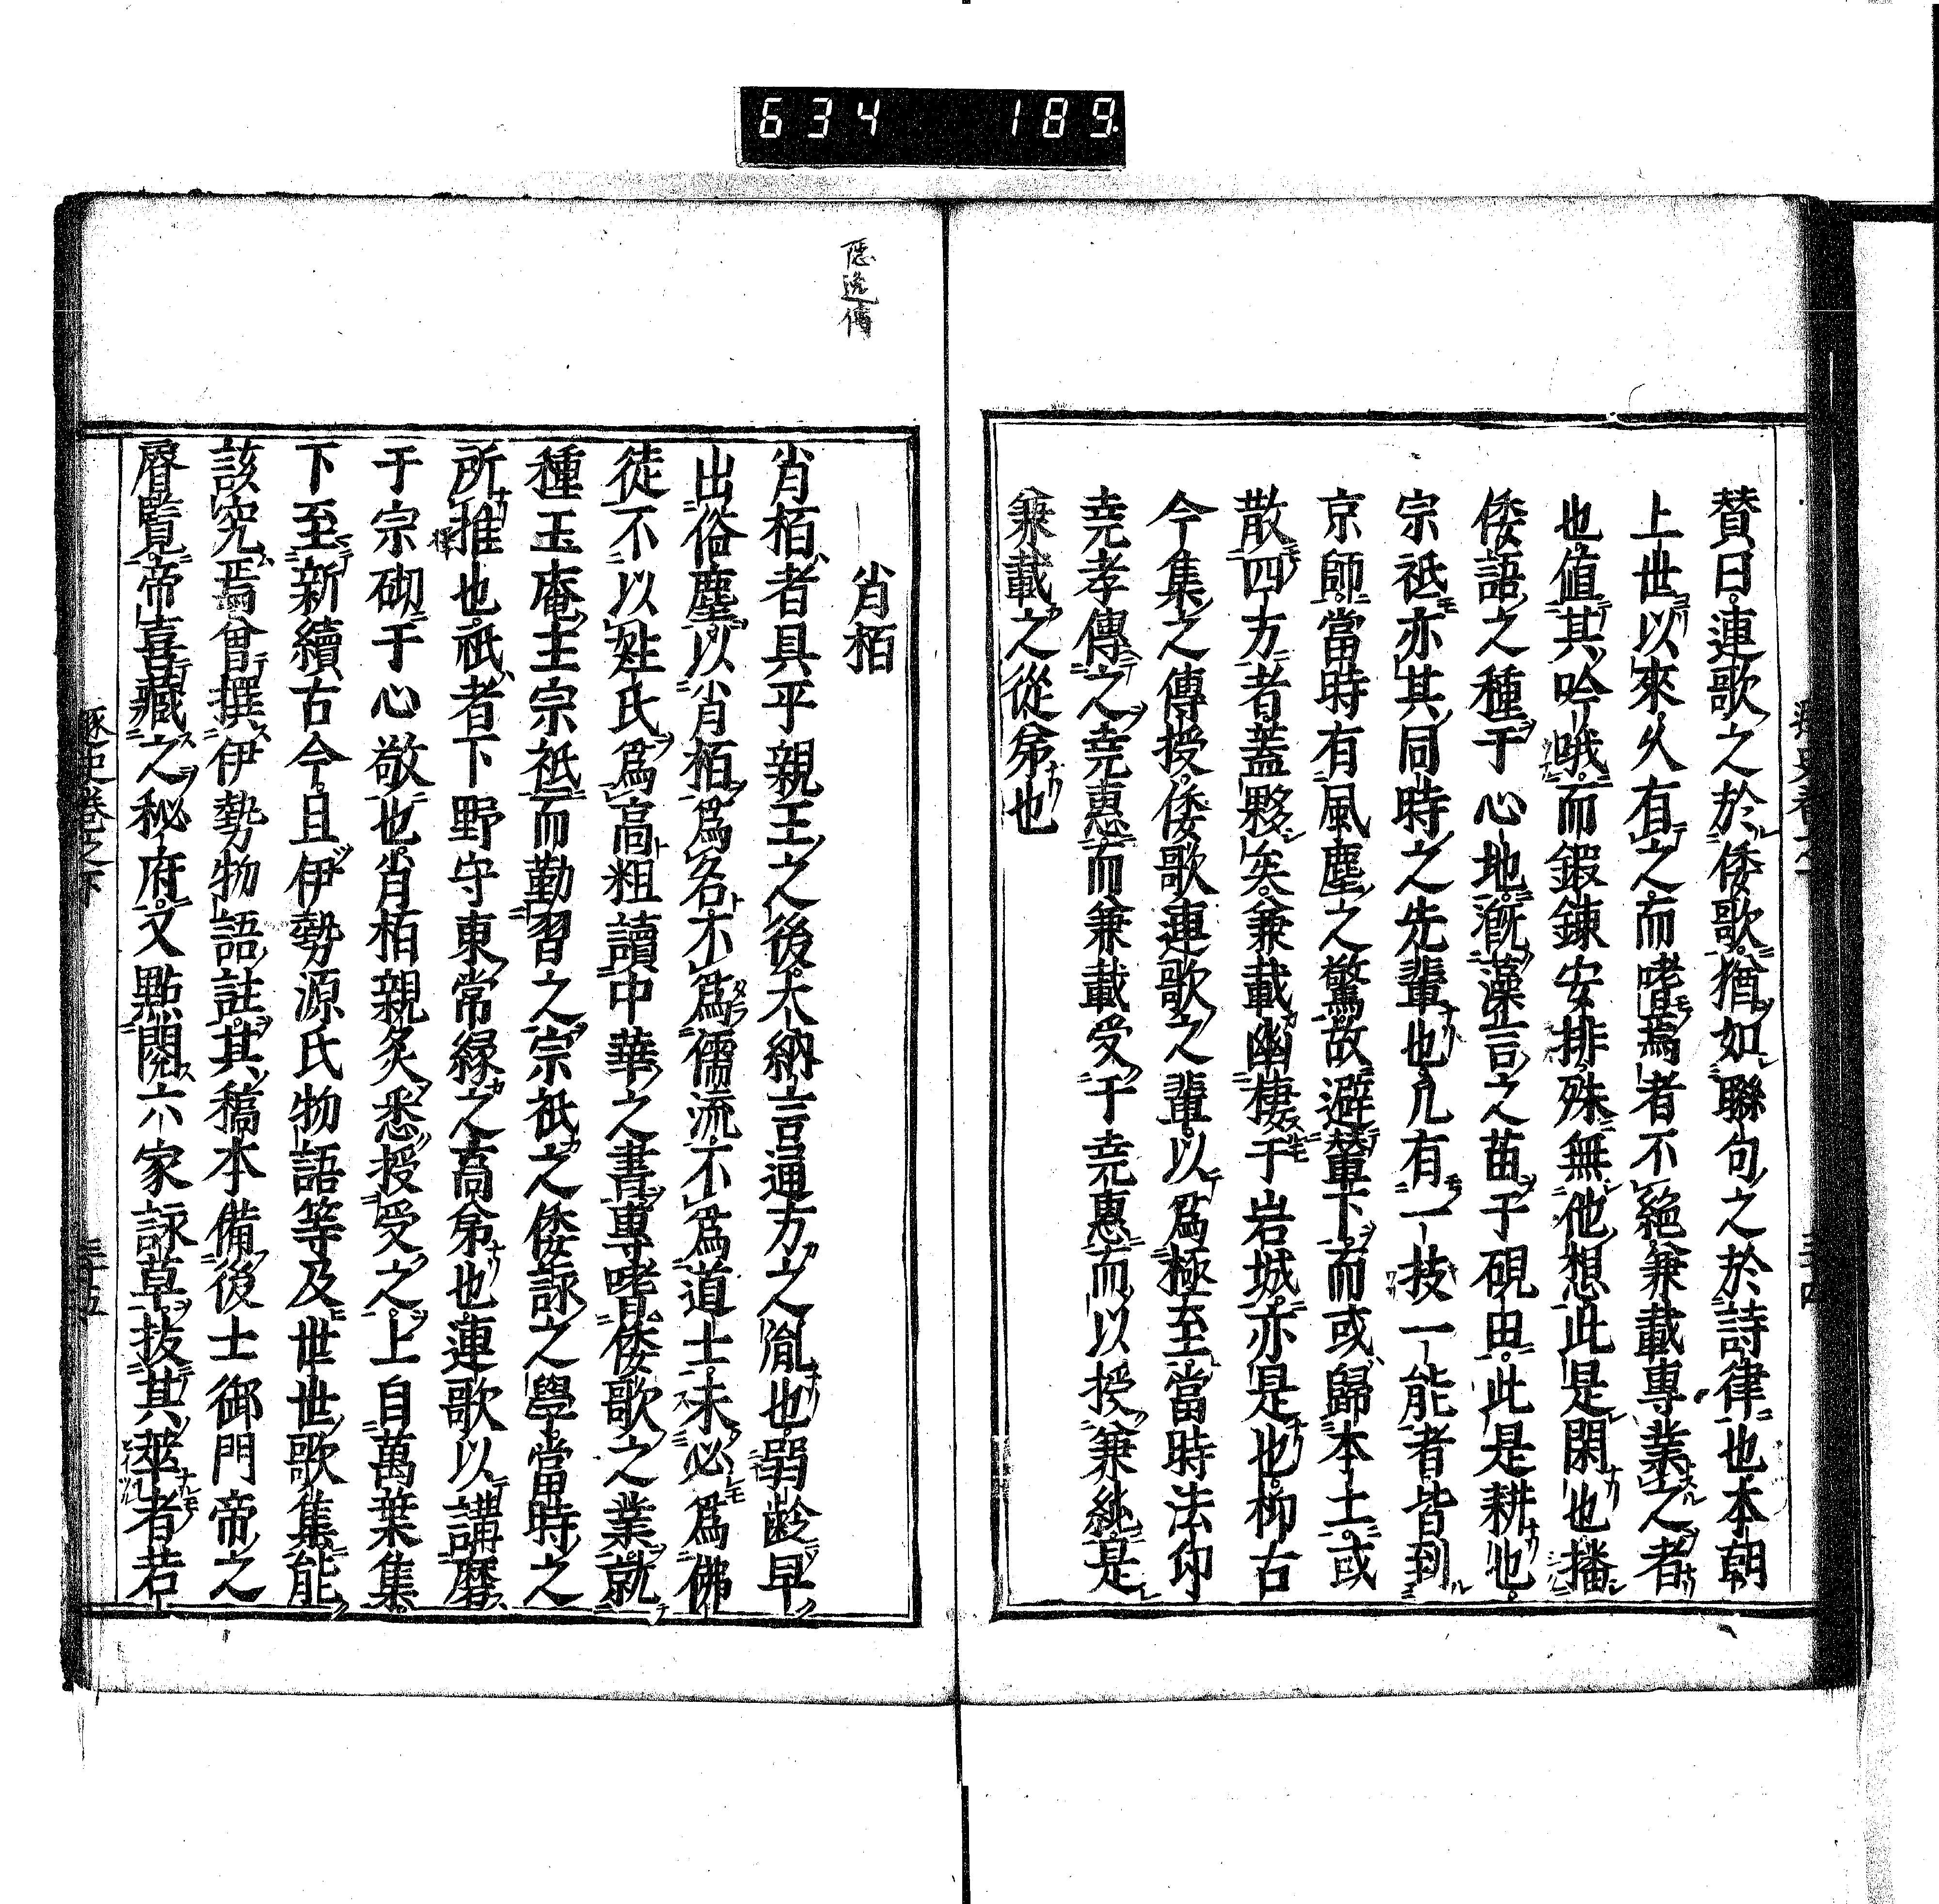 634 189
賛曰連歌之於倭歌猶如聯句之於詩律也本朝
上世以來久有之而嗜焉者不絕兼載專業之者
也値其吟哦而鍜鍊安排殊無他想此是閑也播
倭語之種于心地漑藻言之苗于硯田此是耕也
宗祇亦其同時之先輩也凡有一技一能者皆到
京師當時有風塵之驚故避輦下而或歸本土或
散四方者蓋夥矣兼載幽棲于岩城亦是也抑古
今集之傳授倭歌連歌之輩以爲極至當時法印
尭孝傳之尭惠而兼載受于尭惠而以授兼純是
兼載之從弟也
隱逸傳
肖栢
肖栢者具平親王之後大納言通方之胤也弱齡早
出俗塵以肖栢爲名不爲儒流不爲道士未必爲佛
徒不以姓氏爲高粗讀中華之書專嗜倭歌之業就
種玉庵主宗祇而勤習之宗祇之倭詠之學當時之
所推也祇者下野守東常縁之高弟也連歌以講磨
于宗砌于心敬也肖栢親炙悉授受之上自萬葉集
下至新續古今且伊勢源氏物語等及世世歌集能
該究焉曾撰伊勢物語註其稿本備後土御門帝之
睿覽帝喜藏之秘府又點閱六家詠草拔其萃者若
豕臣卷之下
三十五